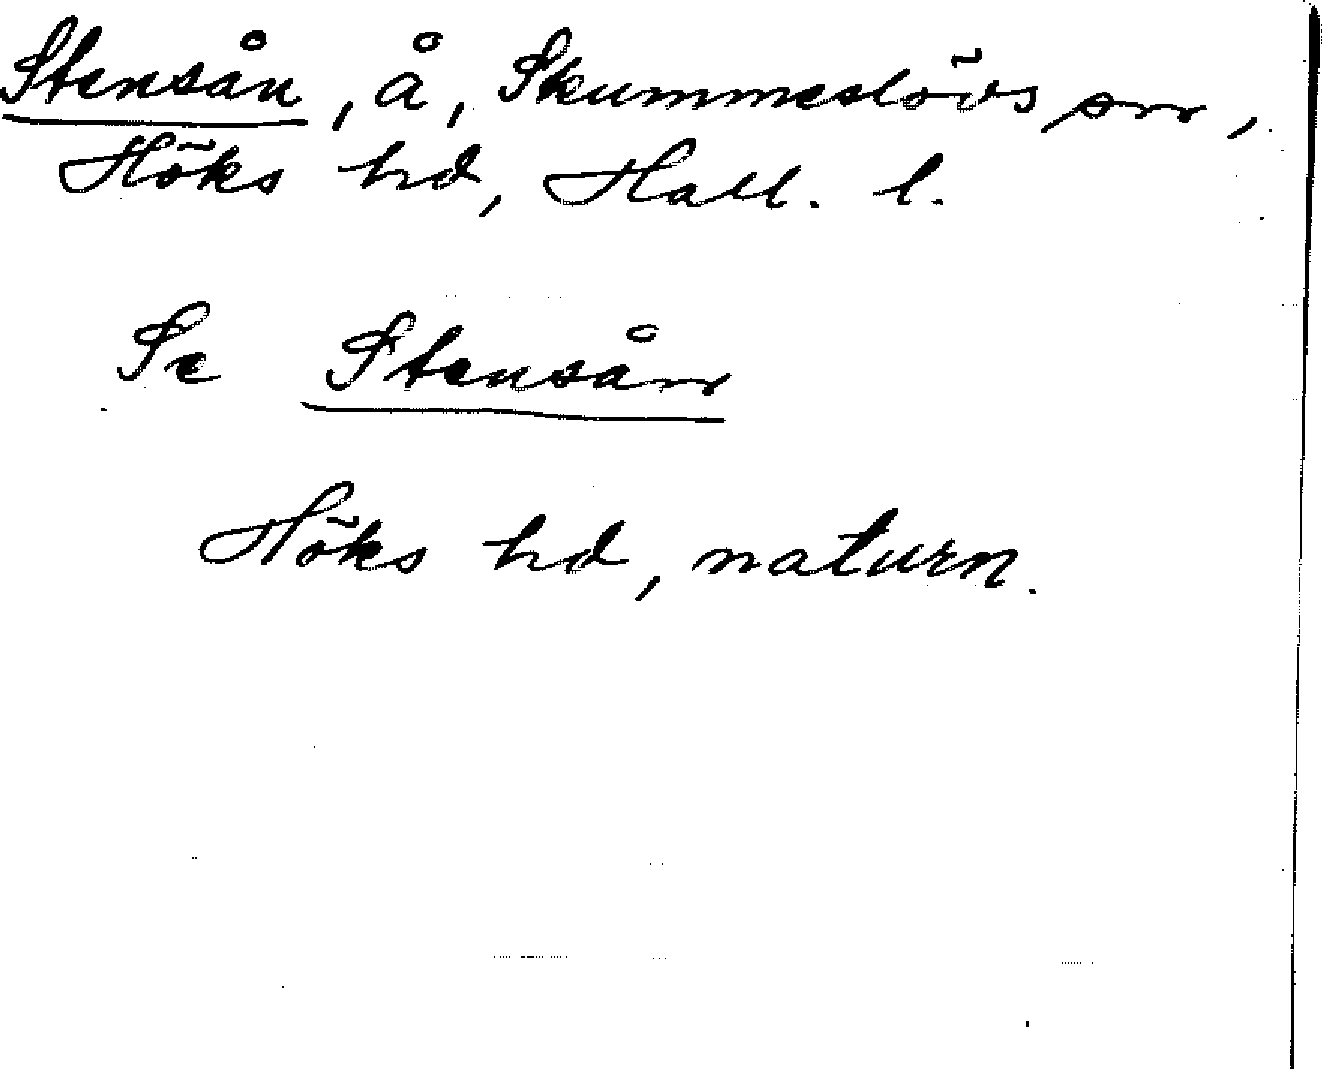 Stensån, å, Skummeslövs sn,
Höks hd, Hall. l.
Se Stensån
Höks hd, naturn.